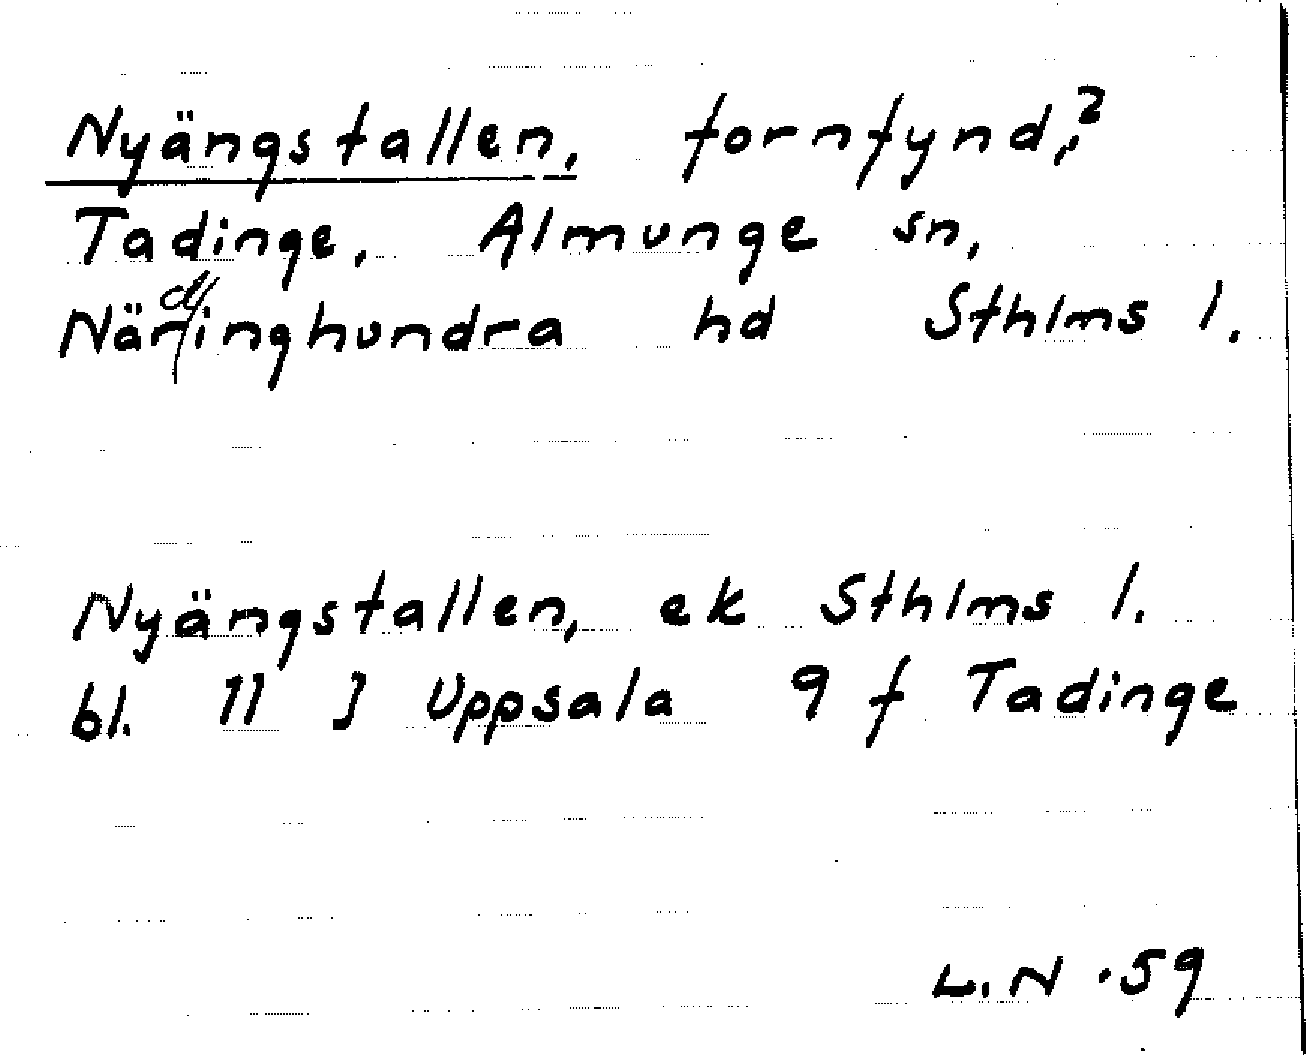 Nyängstallen, fornfynd,?
Tadinge, Almunge sn,
Närdinghundra hd Sthlms l.
Nyängstallen, ek Sthlms l.
bl. 11 J Uppsala 9 f Tadinge
L.N. 59